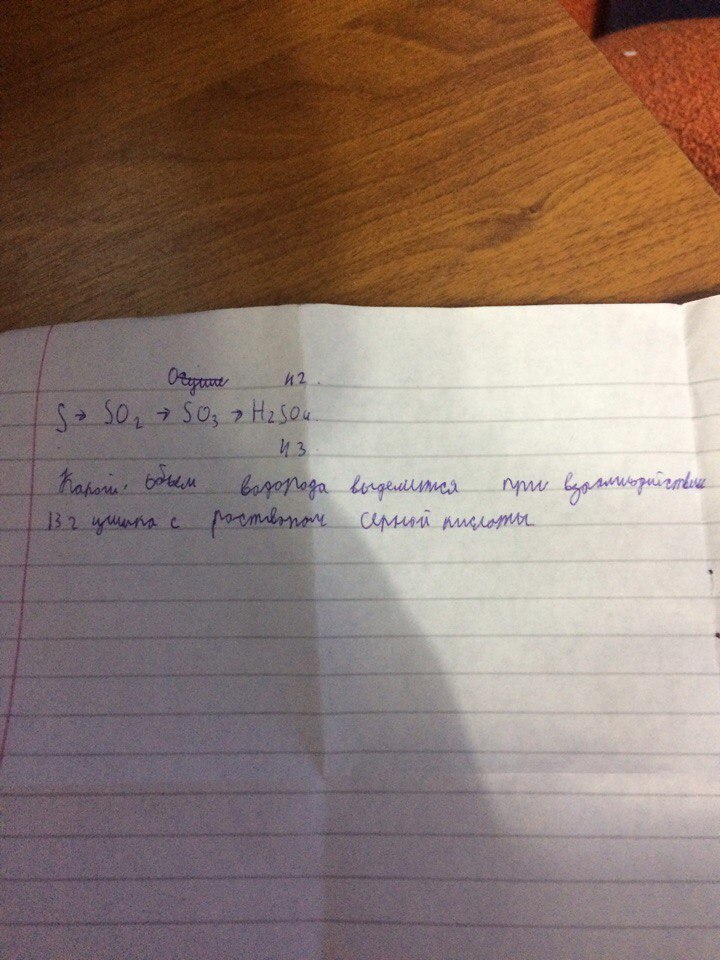 н2.
S → SO2 → SO3 → H2SO4.
н3
Какой объем водорода выделится при взаимодействии
13 г цинка с раствором серной кислоты